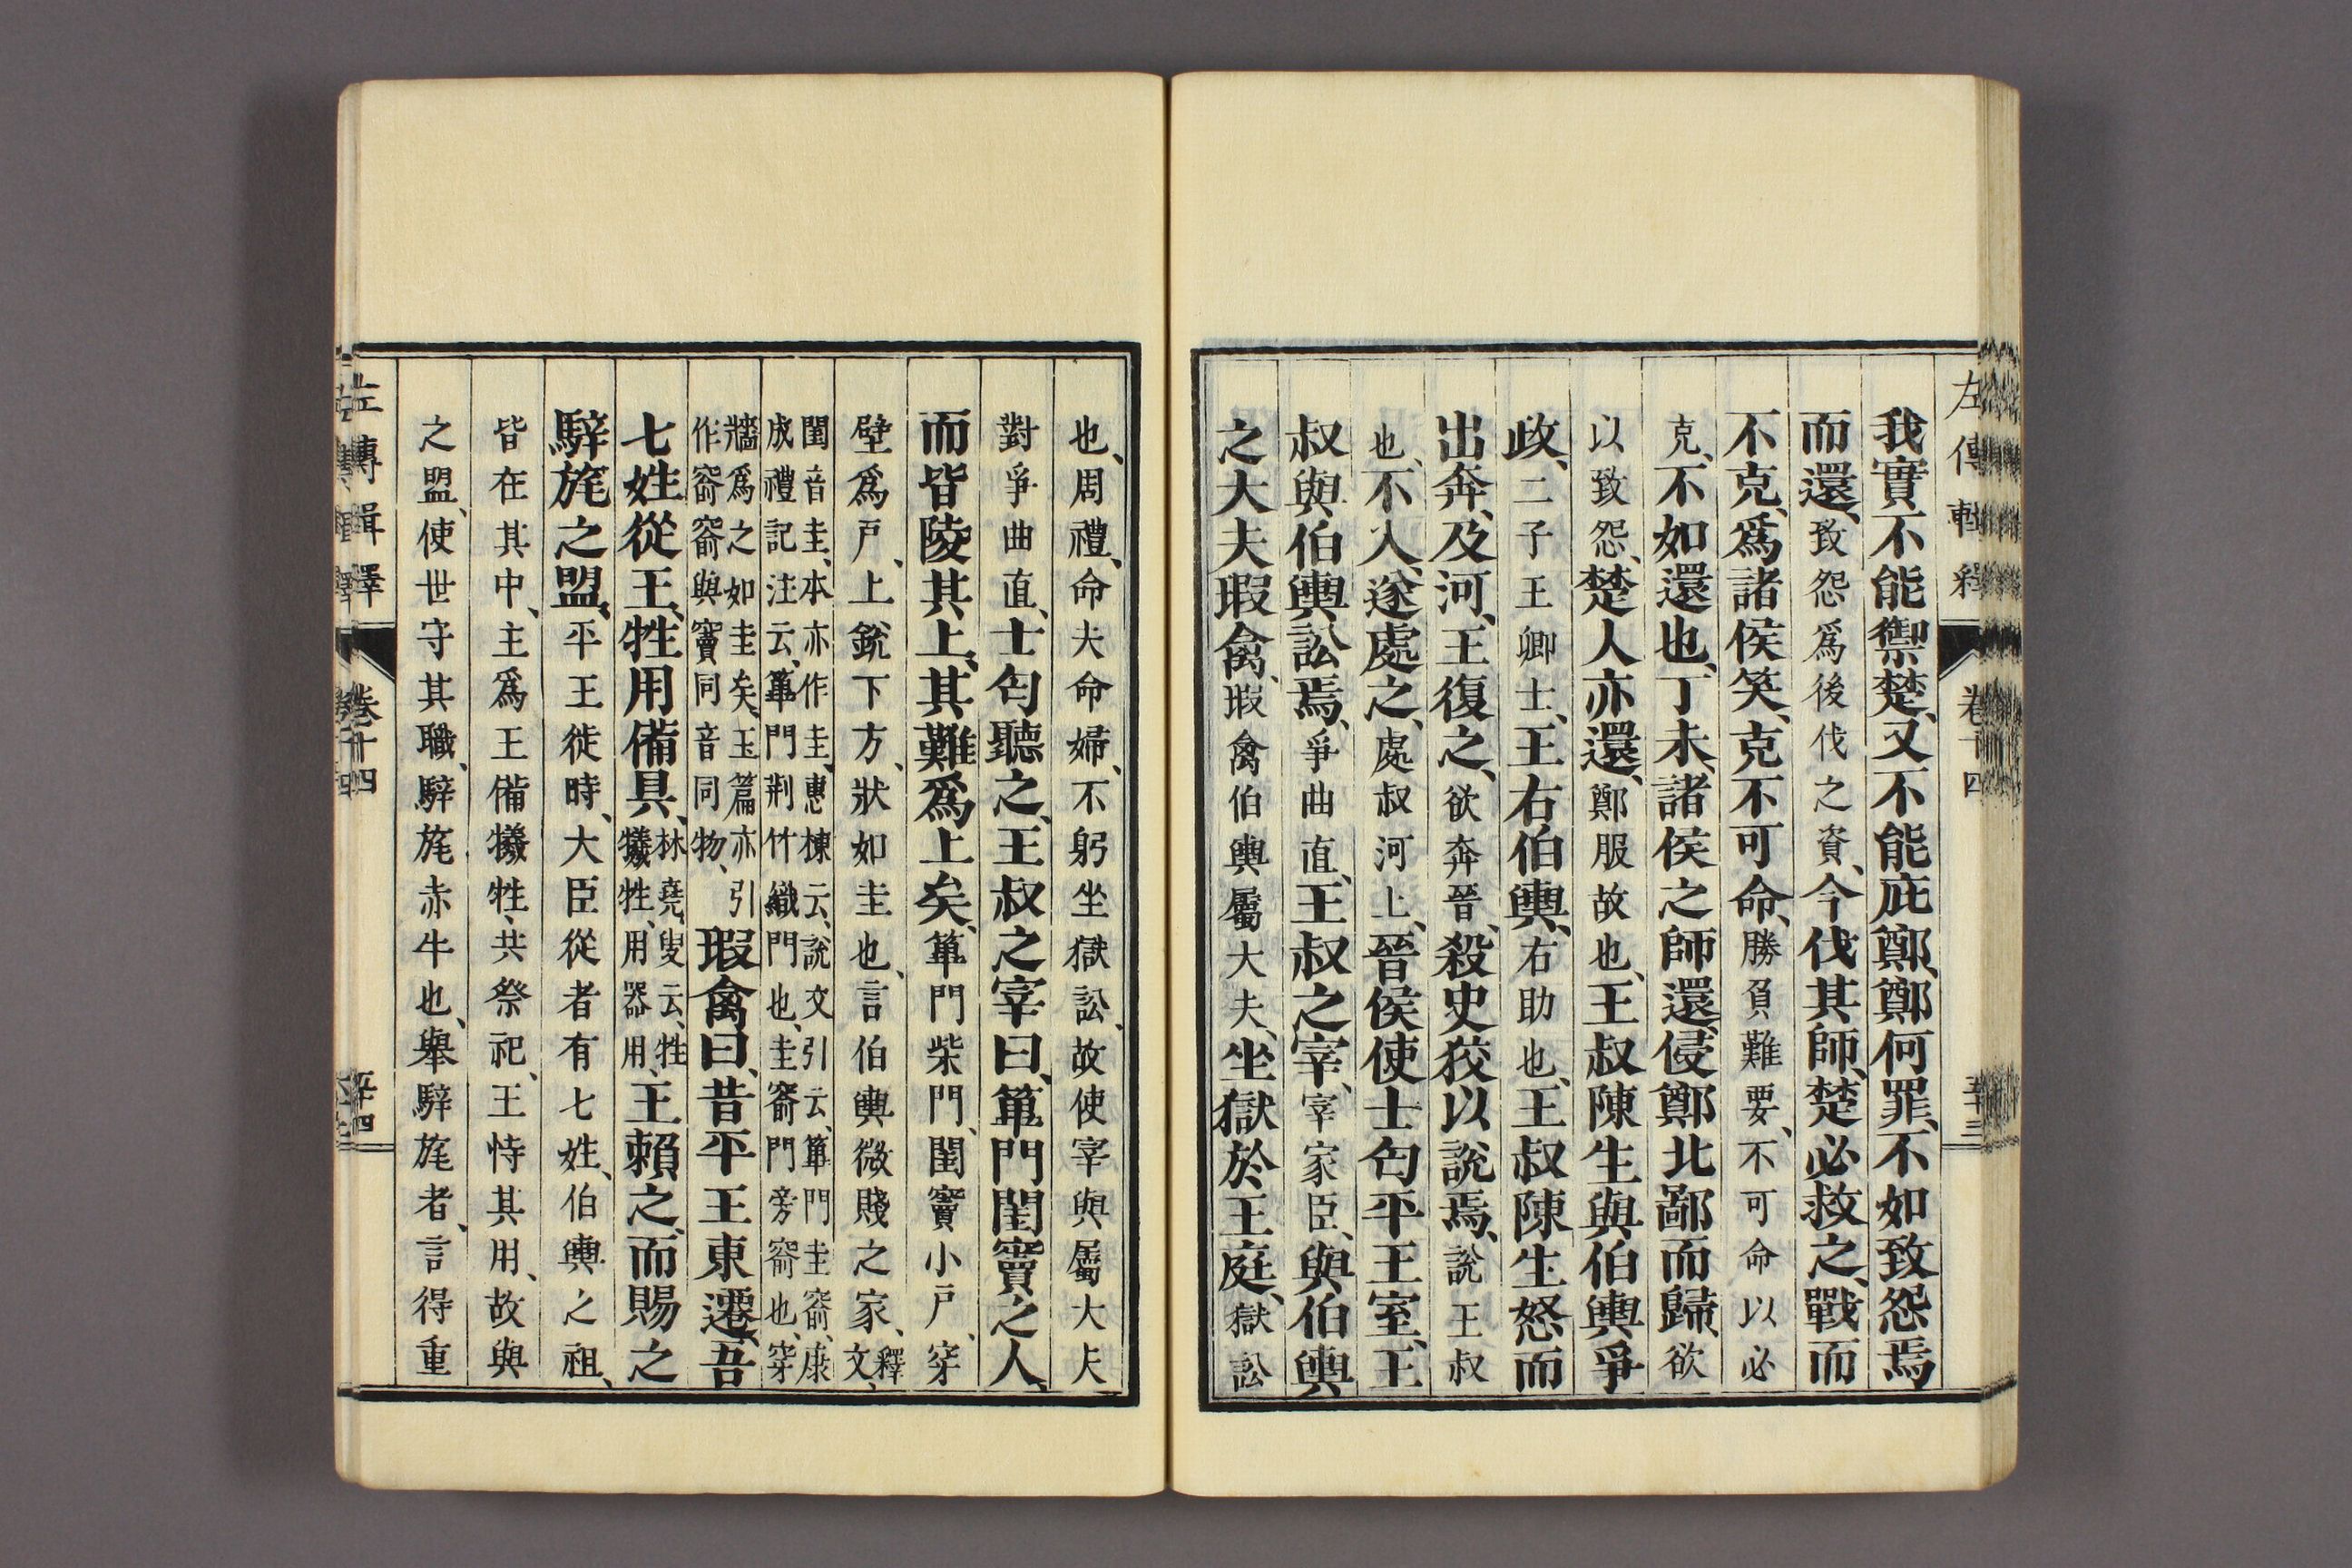 左傳輯釋 卷十四 五十三
我實不能禦楚、又不能庇鄭、鄭何罪、不如致怨焉
而還、致怨爲後伐之資、今伐其師、楚必救之、戰而
不克、爲諸侯笑、克不可命、勝負難要、不可命以必
克、不如還也、丁未、諸侯之師還、侵鄭北鄙而歸、欲
以致怨、楚人亦還、鄭服故也、王叔陳生與伯輿爭
政、二子王卿士、王右伯輿、右助也、王叔陳生怒而
出奔、及河、王復之、欲奔晉、殺史狡以說焉、說王叔
也、不入、遂處之、處叔河上、晉侯使士匄平王室、王
叔與伯輿訟焉、爭曲直、王叔之宰、宰家臣、與伯輿
之大夫瑕禽、瑕禽伯輿屬大夫、坐獄於王庭、獄訟
也、周禮、命夫命婦、不躬坐獄訟、故使宰與屬大夫
對爭曲直、士匄聽之、王叔之宰曰、篳門閨竇之人、
而皆陵其上、其難爲上矣、篳門柴門、閨竇小戸、穿
壁爲戸、上銳下方、狀如圭也、言伯輿微賤之家、釋文、
閨音圭、本亦作圭、惠棟云、說文引云、篳門圭窬、康
成禮記注云、篳門荆竹織門也、圭窬門旁窬也、穿
牆爲之如圭矣、玉篇亦引
作窬窬與竇同音同物、瑕禽曰、昔平王東遷、吾
七姓從王、牲用備具、林堯叟云、牲犧牲、用器用、王賴之、而賜之
騂旄之盟、平王徙時、大臣從者有七姓、伯輿之祖、
皆在其中、主爲王備犧牲、共祭祀、王恃其用、故與
之盟、使世守其職、騂旄赤牛也、舉騂旄者、言得重
左傳輯釋 卷十四 五十四